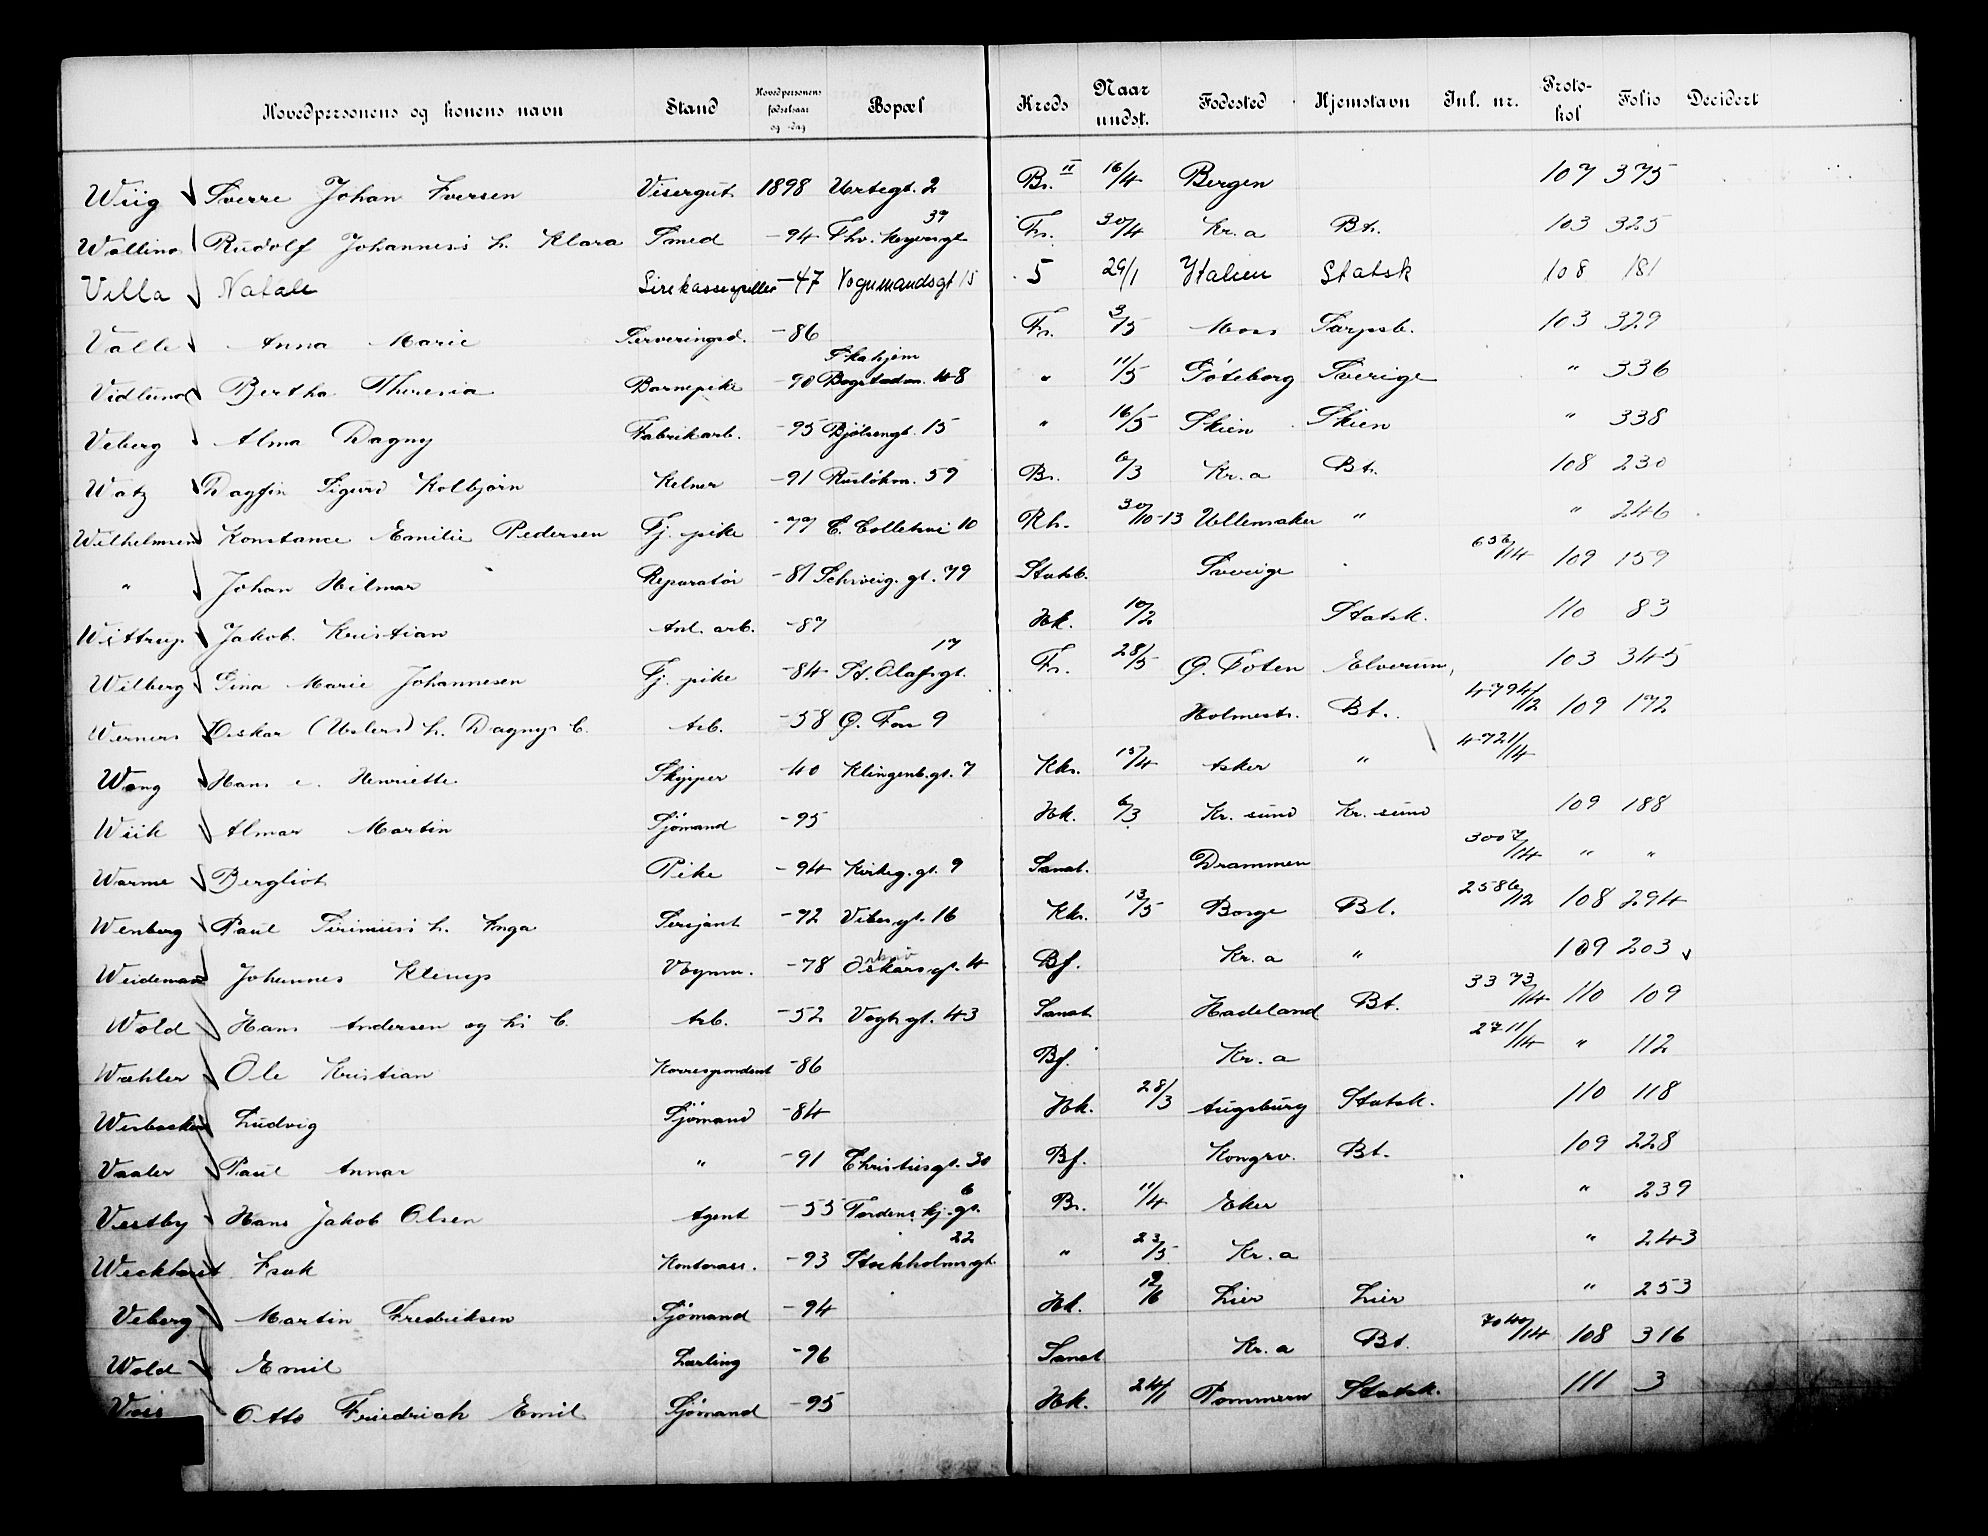 Hovedpersonens og konens navn Stand Hovedpersonens fødselsaar og -dag Bopæl Kreds Naar undst. Fødested Hjemstavn Inl. nr. Protokol Folio Decidert
Wiig Sverre Johan Iversen Visergut 1898 Urtegt. 2 Br. II 16/4 Bergen 107 375
Rudolf Johannes's h. Klara Smed -94 Thv. Meyersgt 39 Fr. 30/4 Kr.a Bt. 103 325
Villa Natale Lirekassespiller -47 Vognmandsgt 15 5 29/1 Italien Statsk 108 181
Valle Anna Marie Serveringsd. -86 Fr. 3/5 Moss Sarpsb. 103 329
Vidlund Bertha Theresia Barnepike -90 Bogstadvn. 48 " 11/5 Göteborg Sverige " 336
Veberg Alma Dagny Fabrikarb. -95 Bjølsengt. 15 " 16/5 Skien Skien " 338
Watz Dagfin Sigurd Kolbjørn Kelner -91 Rusløkvn. 59 Br. 6/3 Kr.a Bt. 108 230
Wilhelmsen Konstance Emilie Pedersen Tj. pike -77 C. Colletsvei 10 Rh. 30/10-13 Ullensaker " " 246
" Johan Hilmar Reparatør -81 Schweig. gt. 79 Statsb. Sverige 636/14 109 159
Wittrup Jakob Kristian Anl. arb. -87 Hk. 10/2 Statsk. 110 83
Wilberg Gina Marie Johannesen Tj. pike -84 St. Olafsgt. 17 Fr. 28/5 Ø. Toten Elverum 103 345
Werners Oskar h. Dagny C. Arb. -58 Ø. Foss 9 Holmestr. Bt. 4794/12 109 172
Wang Hans e. Henriette Skipper -40 Klingenb.gt. 7 Kkr. 15/4 Asker " 4721/14
Wiik Almar Martin Sjømand -95 Hk. 6/3 Kr. sund Kr. sund 109 188
Warme Bergliot Pike -94 Kirkeg. gt. 9 Sanat. Drammen 3007/14 " "
Wenberg Paul Sirinius's h. Inga Sersjant -92 Vibesgt. 16 Kkr. 13/5 Borge Bt. 2586/12 108 294
Weideman Johannes Klerup Vognm. -78 Oskarsgt. 4 Bf. Kr.a " 109 203
Wold Hans Andersen og h's C. Arb. -52 Vogtsgt. 43 Sanat. Hadeland Bt. 3373/14 110 109
Wæhler Ole Kristian Korrespondent -86 Bf. Kr.a 2711/14 " 112
Ludvig Sjømand -84 Hk. 28/3 Augsburg Statsk. 110 118
Vaaler Paul Annar " -91 Christiesgt. 30 Bf. Kongsv. Bt. 109 228
Vestby Hans Jakob Olsen Agent -55 Tordenskj. gt. 6 Br. 11/4 Eker " 239
Isak Kontorass. -93 Stockholmsgt. 22 " 23/5 Kr.a " 243
Veberg Martin Fredriksen Sjømand -94 Hk. Lier Lier " 253
Wold Emil Lærling -96 Sanat Kr.a Bt. 7040/14 108 316
Voss Otto Friedrich Emil Sjømand -95 Hk. 24/1 Pommern Statsk. 111 3